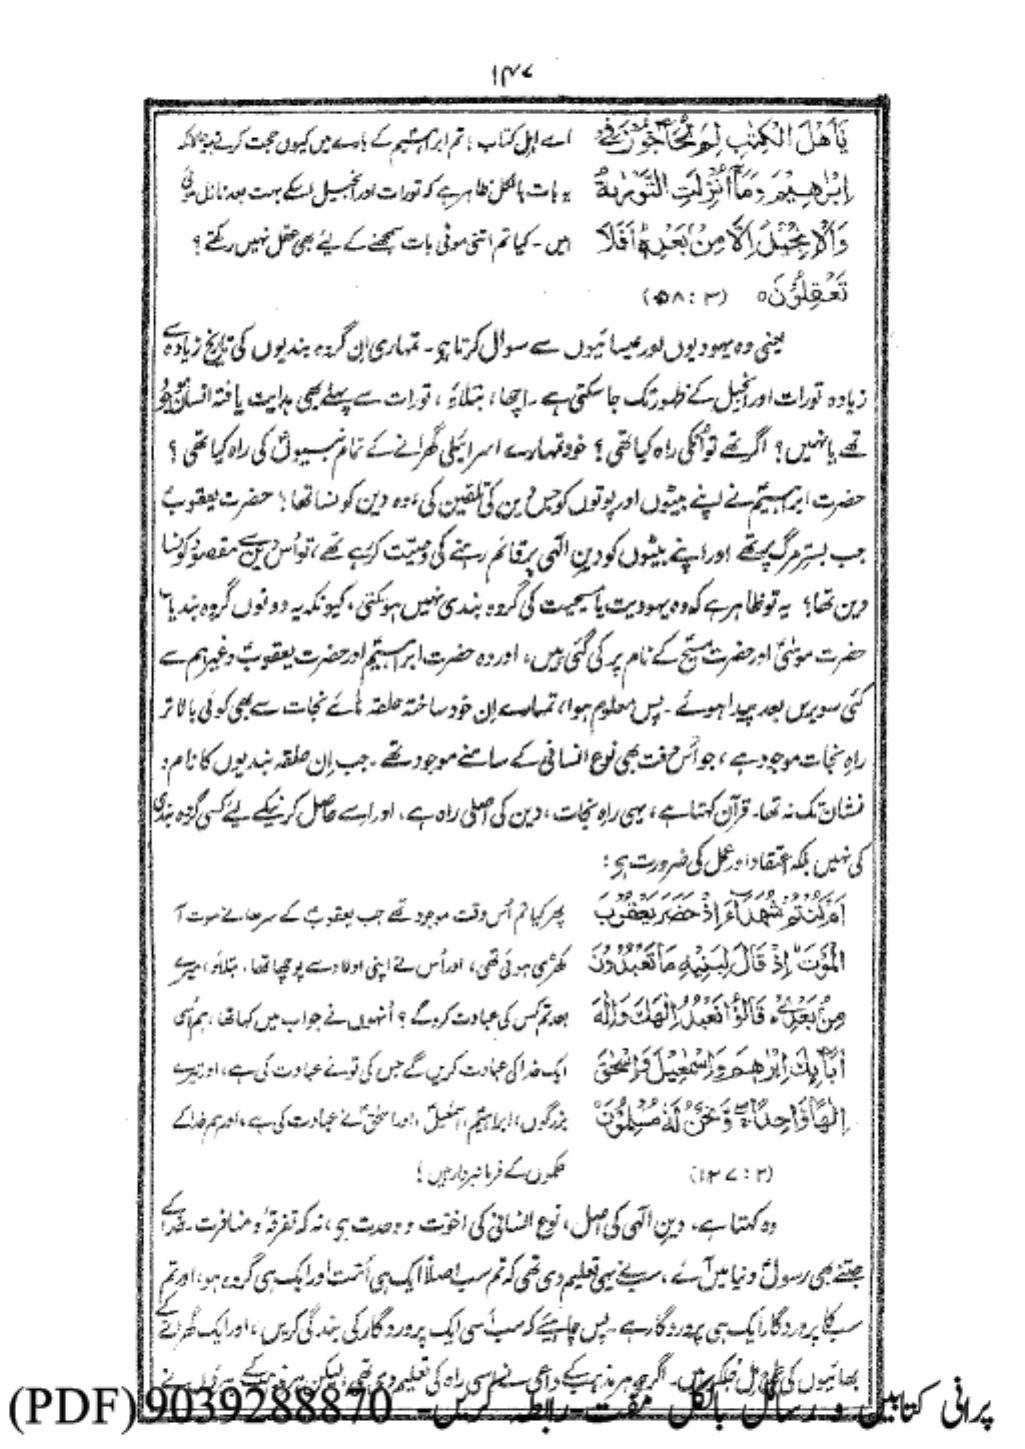 ۱۴۷
يَاَهْلَ الْكِتٰبِ لِمَ تُحَآجُّوْنَ فِيْ اے اہل کتاب ! تم ابراہیم کے بارے میں کیوں حجت کرتے ہو حالانکہ
اِبْرٰهِيْمَ وَمَآ اُنْزِلَتِ التَّوْرٰىةُ یہ بات بالکل ظاہر ہے کہ تورات اور انجیل اسکے بہت بعد نازل ہوئی
وَالْاِنْجِيْلُ اِلَّا مِنْۢ بَعْدِهٖ اَفَلَا ہیں ۔ کیا تم اتنی موٹی بات سمجھنے کے لیے بھی عقل نہیں رکھتے ؟
تَعْقِلُوْنَ ه (۳ : ۵۸)
یعنی وہ یہودیوں اور عیسائیوں سے سوال کرتا ہو ۔ تمہاری ان گروہ بندیوں کی تاریخ زیادہ سے
زیادہ تورات اور انجیل کے ظہور تک جا سکتی ہے ۔ اچھا ، بتلاؤ ، تورات سے پہلے بھی ہدایت یافتہ انسان موجود
تھے یا نہیں ؟ اگر تھے تو اُنکی راہ کیا تھی ؟ خود تمہارے اسرائیلی گھرانے کے تمام نبیوں کی راہ کیا تھی ؟
حضرت ابراہیمؑ نے اپنے بیٹوں اور پوتوں کو جس دین کی تلقین کی ، وہ دین کونسا تھا ؛ حضرت یعقوبؑ
جب بستر مرگ پر تھے اور اپنے بیٹوں کو دین الٰہی پر قائم رہنے کی وصیت کر رہے تھے ، تو اُس دین سے مقصود کونسا
دین تھا ؛ یہ تو ظاہر ہے کہ وہ یہودیت یا مسیحیت کی گروہ بندی نہیں ہو سکتی ، کیونکہ یہ دونوں گروہ بندیاں
حضرت موسیٰؑ اور حضرت مسیحؑ کے نام پر کی گئی ہیں ، اور وہ حضرت ابراہیمؑ اور حضرت یعقوبؑ وغیرہم سے
کئی سو برس بعد پیدا ہوئے ۔ پس معلوم ہوا ، تمہارے ان خود ساختہ حلقہ ہائے نجات سے بھی کوئی بالاتر
راہِ نجات موجود ہے ، جو اُس وقت بھی نوع انسانی کے سامنے موجود تھے ۔ جب اِن حلقہ بندیوں کا نام و
نشان تک نہ تھا ۔ قرآن کہتا ہے ، یہی راہِ نجات ، دین کی اصلی راہ ہے ، اور اسے حاصل کرنیکے لیے کسی گروہ بندی
کی نہیں بلکہ اعتقاد اور عمل کی ضرورت ہو :
اَمْ كُنْتُمْ شُهَدَآءَ اِذْ حَضَرَ يَعْقُوْبَ پھر کیا تم اُس وقت موجود تھے جب یعقوبؑ کے سرہانے موت آ
الْمَوْتُ اِذْ قَالَ لِبَنِيْهِ مَا تَعْبُدُوْنَ کھڑی ہوئی تھی ، اور اُس نے اپنی اولاد سے پوچھا تھا ۔ بتلاؤ ، میرے
مِنْۢ بَعْدِيْ قَالُوْا نَعْبُدُ اِلٰهَكَ وَاِلٰهَ بعد تم کس کی عبادت کروگے ؟ اُنہوں نے جواب میں کہا تھا ، ہم اُسی
اٰبَآئِكَ اِبْرٰهٖمَ وَاِسْمٰعِيْلَ وَاِسْحٰقَ ایک خدا کی عبادت کریں گے جس کی تو نے عبادت کی ہے ، اور تیرے
اِلٰهًا وَّاحِدًا وَّنَحْنُ لَهٗ مُسْلِمُوْنَ بزرگوں ، ابراہیمؑ ، اسمٰعیلؑ ، اور اسحٰقؑ نے عبادت کی ہے ، اور ہم خدا کے
(۲ : ۱۲۷) حکموں کے فرمانبردار ہیں !
وہ کہتا ہے ، دین الٰہی کی اصل ، نوع انسانی کی اخوت و وحدت ہو ، نہ کہ تفرقہ و منافرت ۔ خدا کے
جتنے بھی رسول دنیا میں آئے ، سب نے یہی تعلیم دی تھی کہ تم سب اصلاً ایک ہی اُمت اور ایک ہی گروہ ہو ، اور تم
سب کا پروردگار ایک ہی پروردگار ہے ۔ پس چاہیئے کہ سب اُسی ایک پروردگار کی بندگی کریں ، اور ایک گھرانے کے
بھائیوں کی طرح مل جل کر رہیں ۔ اگرچہ ہر مذہب کے داعی نے اسی راہ کی تعلیم دی تھی ، لیکن ہر مذہب کے پیروں نے
پرانی کتابیں و رسائل بالکل مفت - رابطہ کریں - 9039288870 (PDF)